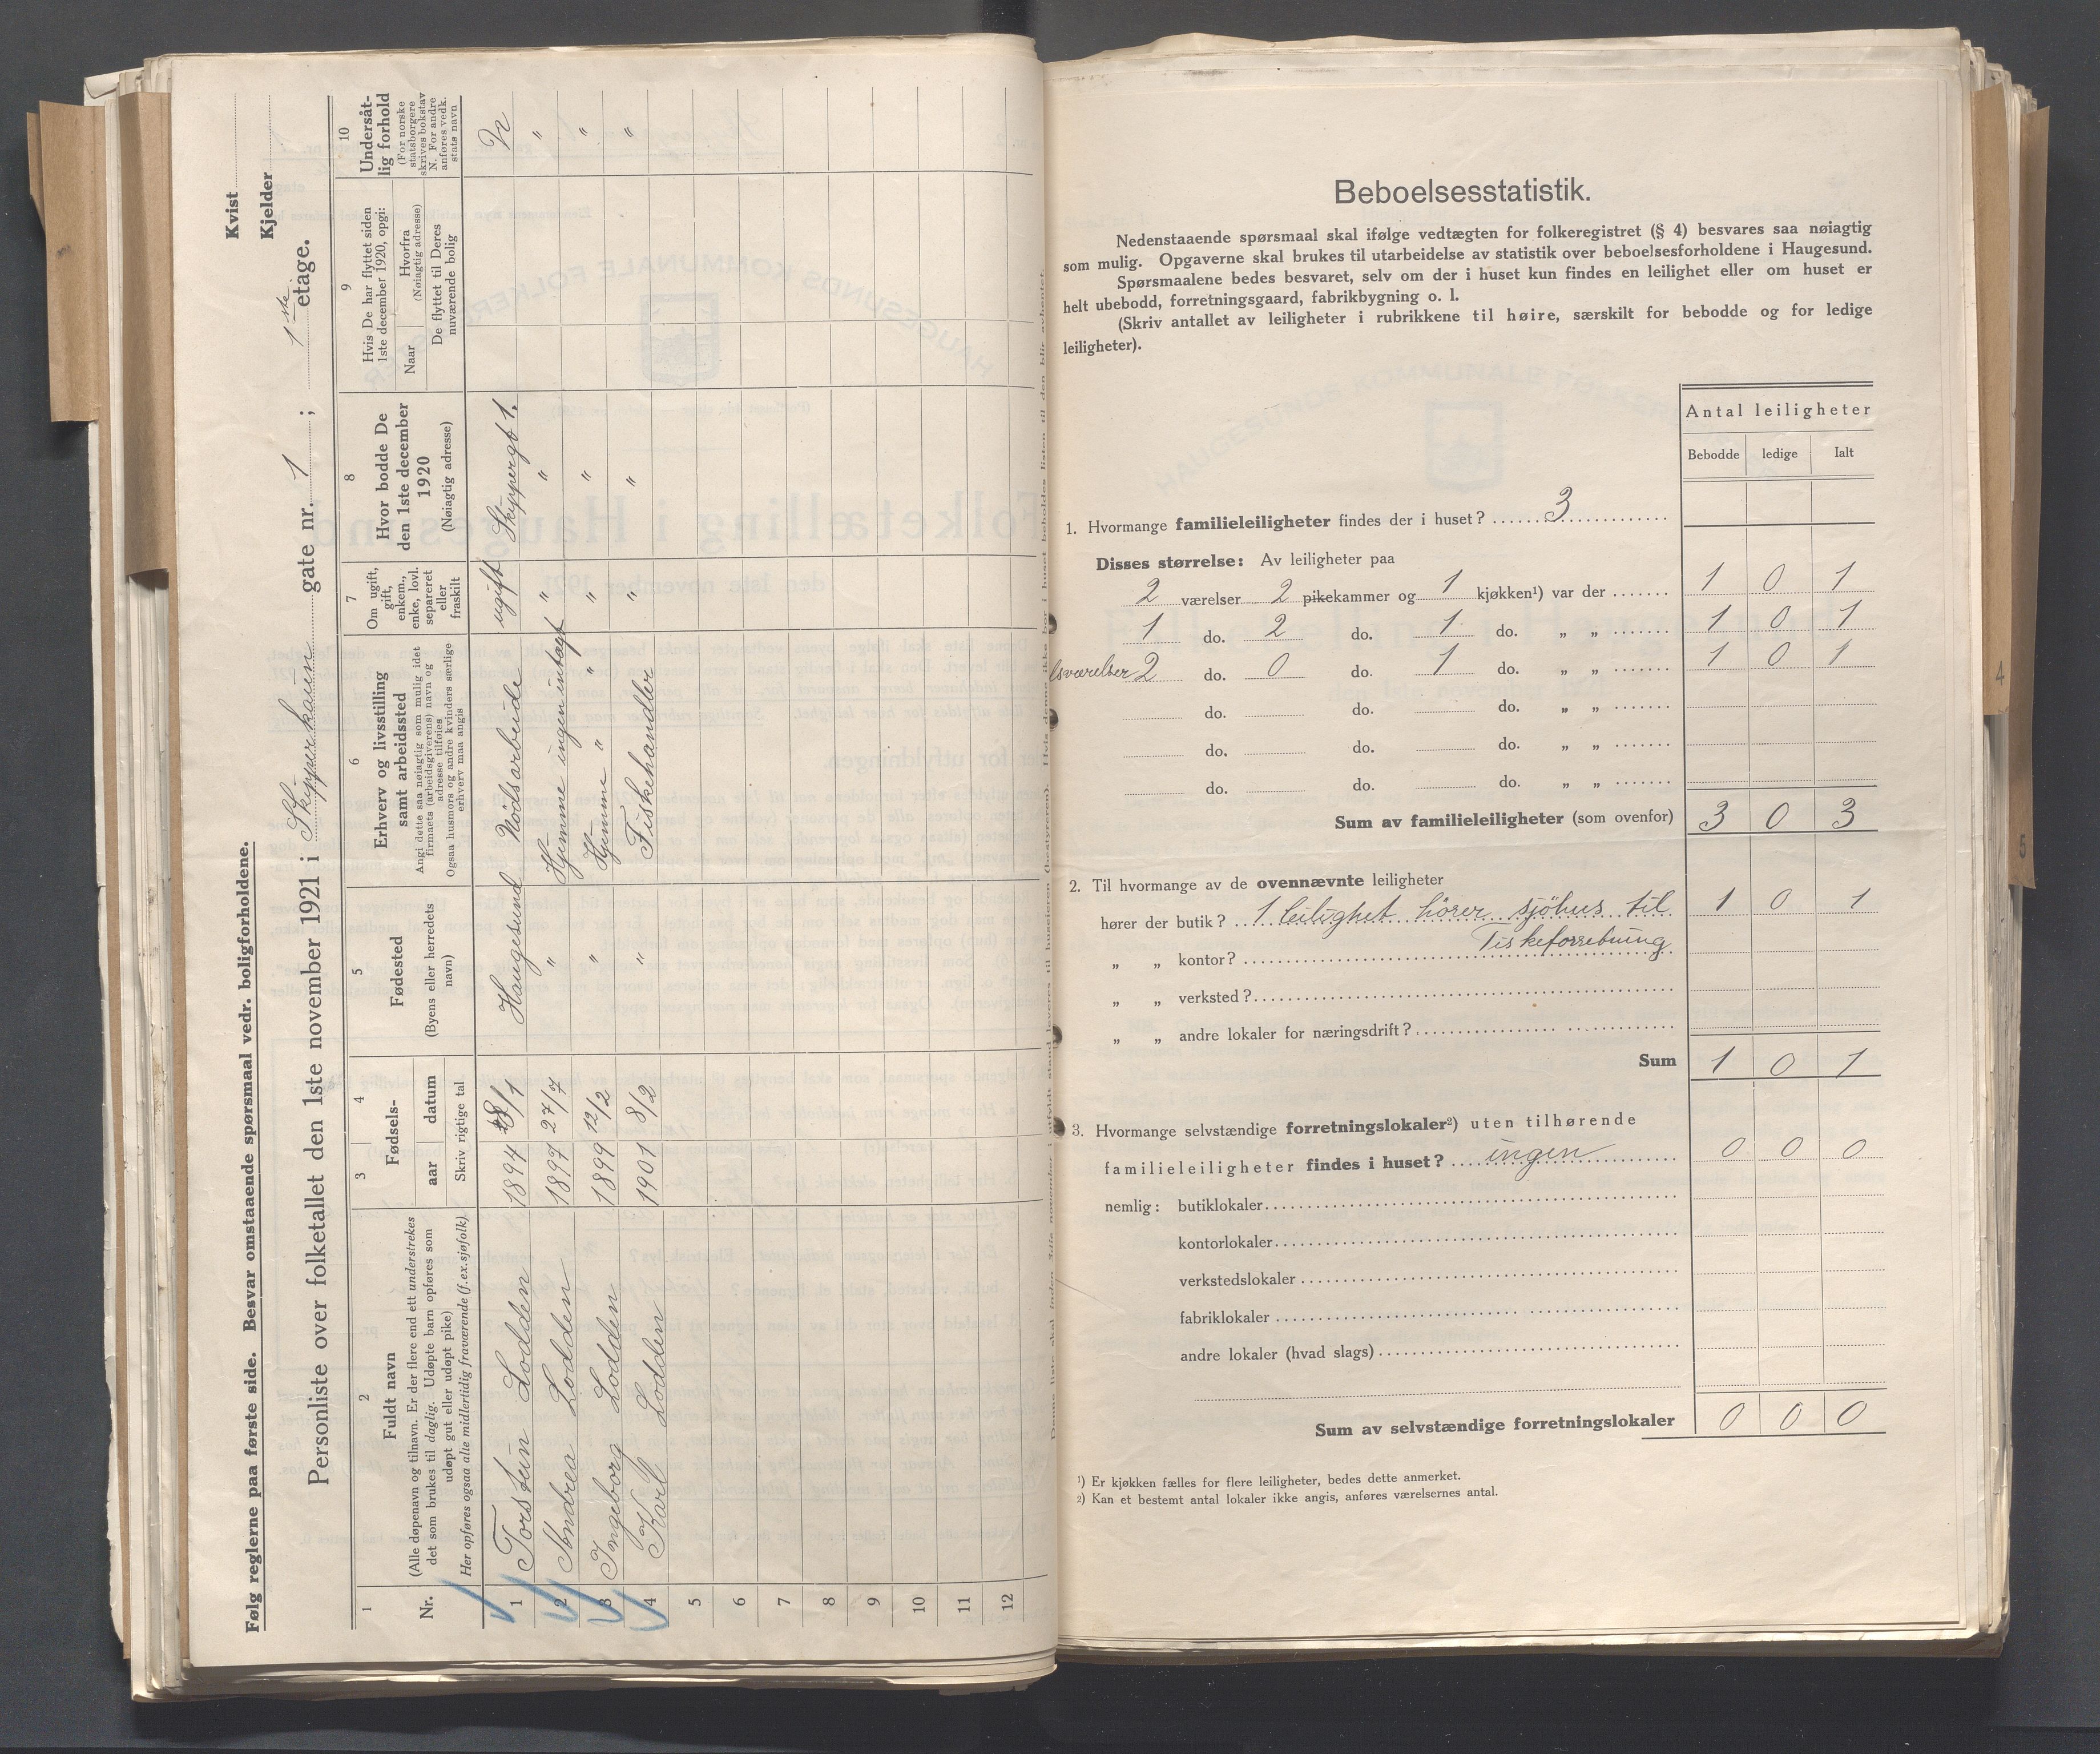 Følg reglerne paa første side. Besvar omstaaende spørsmaal vedr. boligforholdene.
Kvist
Kjelder
Personliste over folketallet den 1ste november 1921 i Skipperhaun gate nr. 1 ; 1ste etage.
1
Nr.
2
Fuldt navn
(Alle døpenavn og tilnavn. Er der flere end ett understrekes
det som brukes til daglig. Udøpte barn opføres som
udøpt gut eller udøpt pike)
Her opføres ogsaa alle midlertidig fraværende (f.ex. sjøfolk)
3 4
Fødsels-
aar datum
Skriv rigtige tal
5
Fødested
(Byens eller herredets
navn)
6
Erhverv og livsstilling
samt arbeidssted
Angi dette saa nøiagtig som mulig idet
firmaets (arbeidsgiverens) navn og
adresse tilføies
Ogsaa husmors og andre kvinders særlige
erhverv maa angis
7
Om ugift,
gift,
enkem.,
enke, lovl.
separeret
eller
fraskilt
8
Hvor bodde De
den 1ste december
1920
(Nøiagtig adresse)
9
Hvis De har flyttet siden
1ste december 1920, opgi:
Naar
Hvorfra
(Nøiagtig adresse)
De flyttet til Deres
nuværende bolig
10
Undersåt-
lig forhold
(For norske
statsborgere
skrives bokstav
N. For andre
anføres vedk.
stats navn
1 Torstein Lodden 1894 28/1 Haugesund Nödsarbeide ugift Skippergt 1. N
2 Andrea Lodden 1897 27/7 " Hjemme ingen intægt " " "
3 Ingeborg Lodden 1899 12/2 " Hjemme " " " " "
4 Karl Lodden 1901 8/2 " Fiskehandler " " "
5
6
7
8
9
10
11
12
Beboelsesstatistik.
Nedenstaaende spørsmaal skal ifølge vedtægten for folkeregistret (§ 4) besvares saa nøiagtig
som mulig. Opgaverne skal brukes til utarbeidelse av statistik over beboelsesforholdene i Haugesund.
Spørsmaalene bedes besvaret, selv om der i huset kun findes en leilighet eller om huset er
helt ubebodd, forretningsgaard, fabrikbygning o. l.
(Skriv antallet av leiligheter i rubrikkene til høire, særskilt for bebodde og for ledige
leiligheter).
Antal leiligheter
Bebodde ledige Ialt
1. Hvormange familieleiligheter findes der i huset? 3
Disses størrelse: Av leiligheter paa
2 værelser 2 pikekammer og 1 kjøkken¹) var der 1 0 1
1 do. 2 do. 1 do. „ „ 1 0 1
lsværelser 2 do. 0 do. 1 do. „ „ 1 0 1
do. do. do. „ „
do. do. do. „ „
do. do. do. „ „
Sum av familieleiligheter (som ovenfor) 3 0 3
2. Til hvormange av de ovennævnte leiligheter
hører der butik? 1 leilighet hörer sjöhus til 1 0 1
Fiskeforretning
„ „ kontor?
„ „ verksted?
„ „ andre lokaler for næringsdrift?
Sum 1 0 1
3. Hvormange selvstændige forretningslokaler²) uten tilhørende
familieleiligheter findes i huset? ingen 0 0 0
nemlig: butiklokaler
kontorlokaler
verkstedslokaler
fabriklokaler
andre lokaler (hvad slags)
Sum av selvstændige forretningslokaler 0 0 0
¹) Er kjøkken fælles for flere leiligheter, bedes dette anmerket.
²) Kan et bestemt antal lokaler ikke angis, anføres værelsernes antal.
4
5